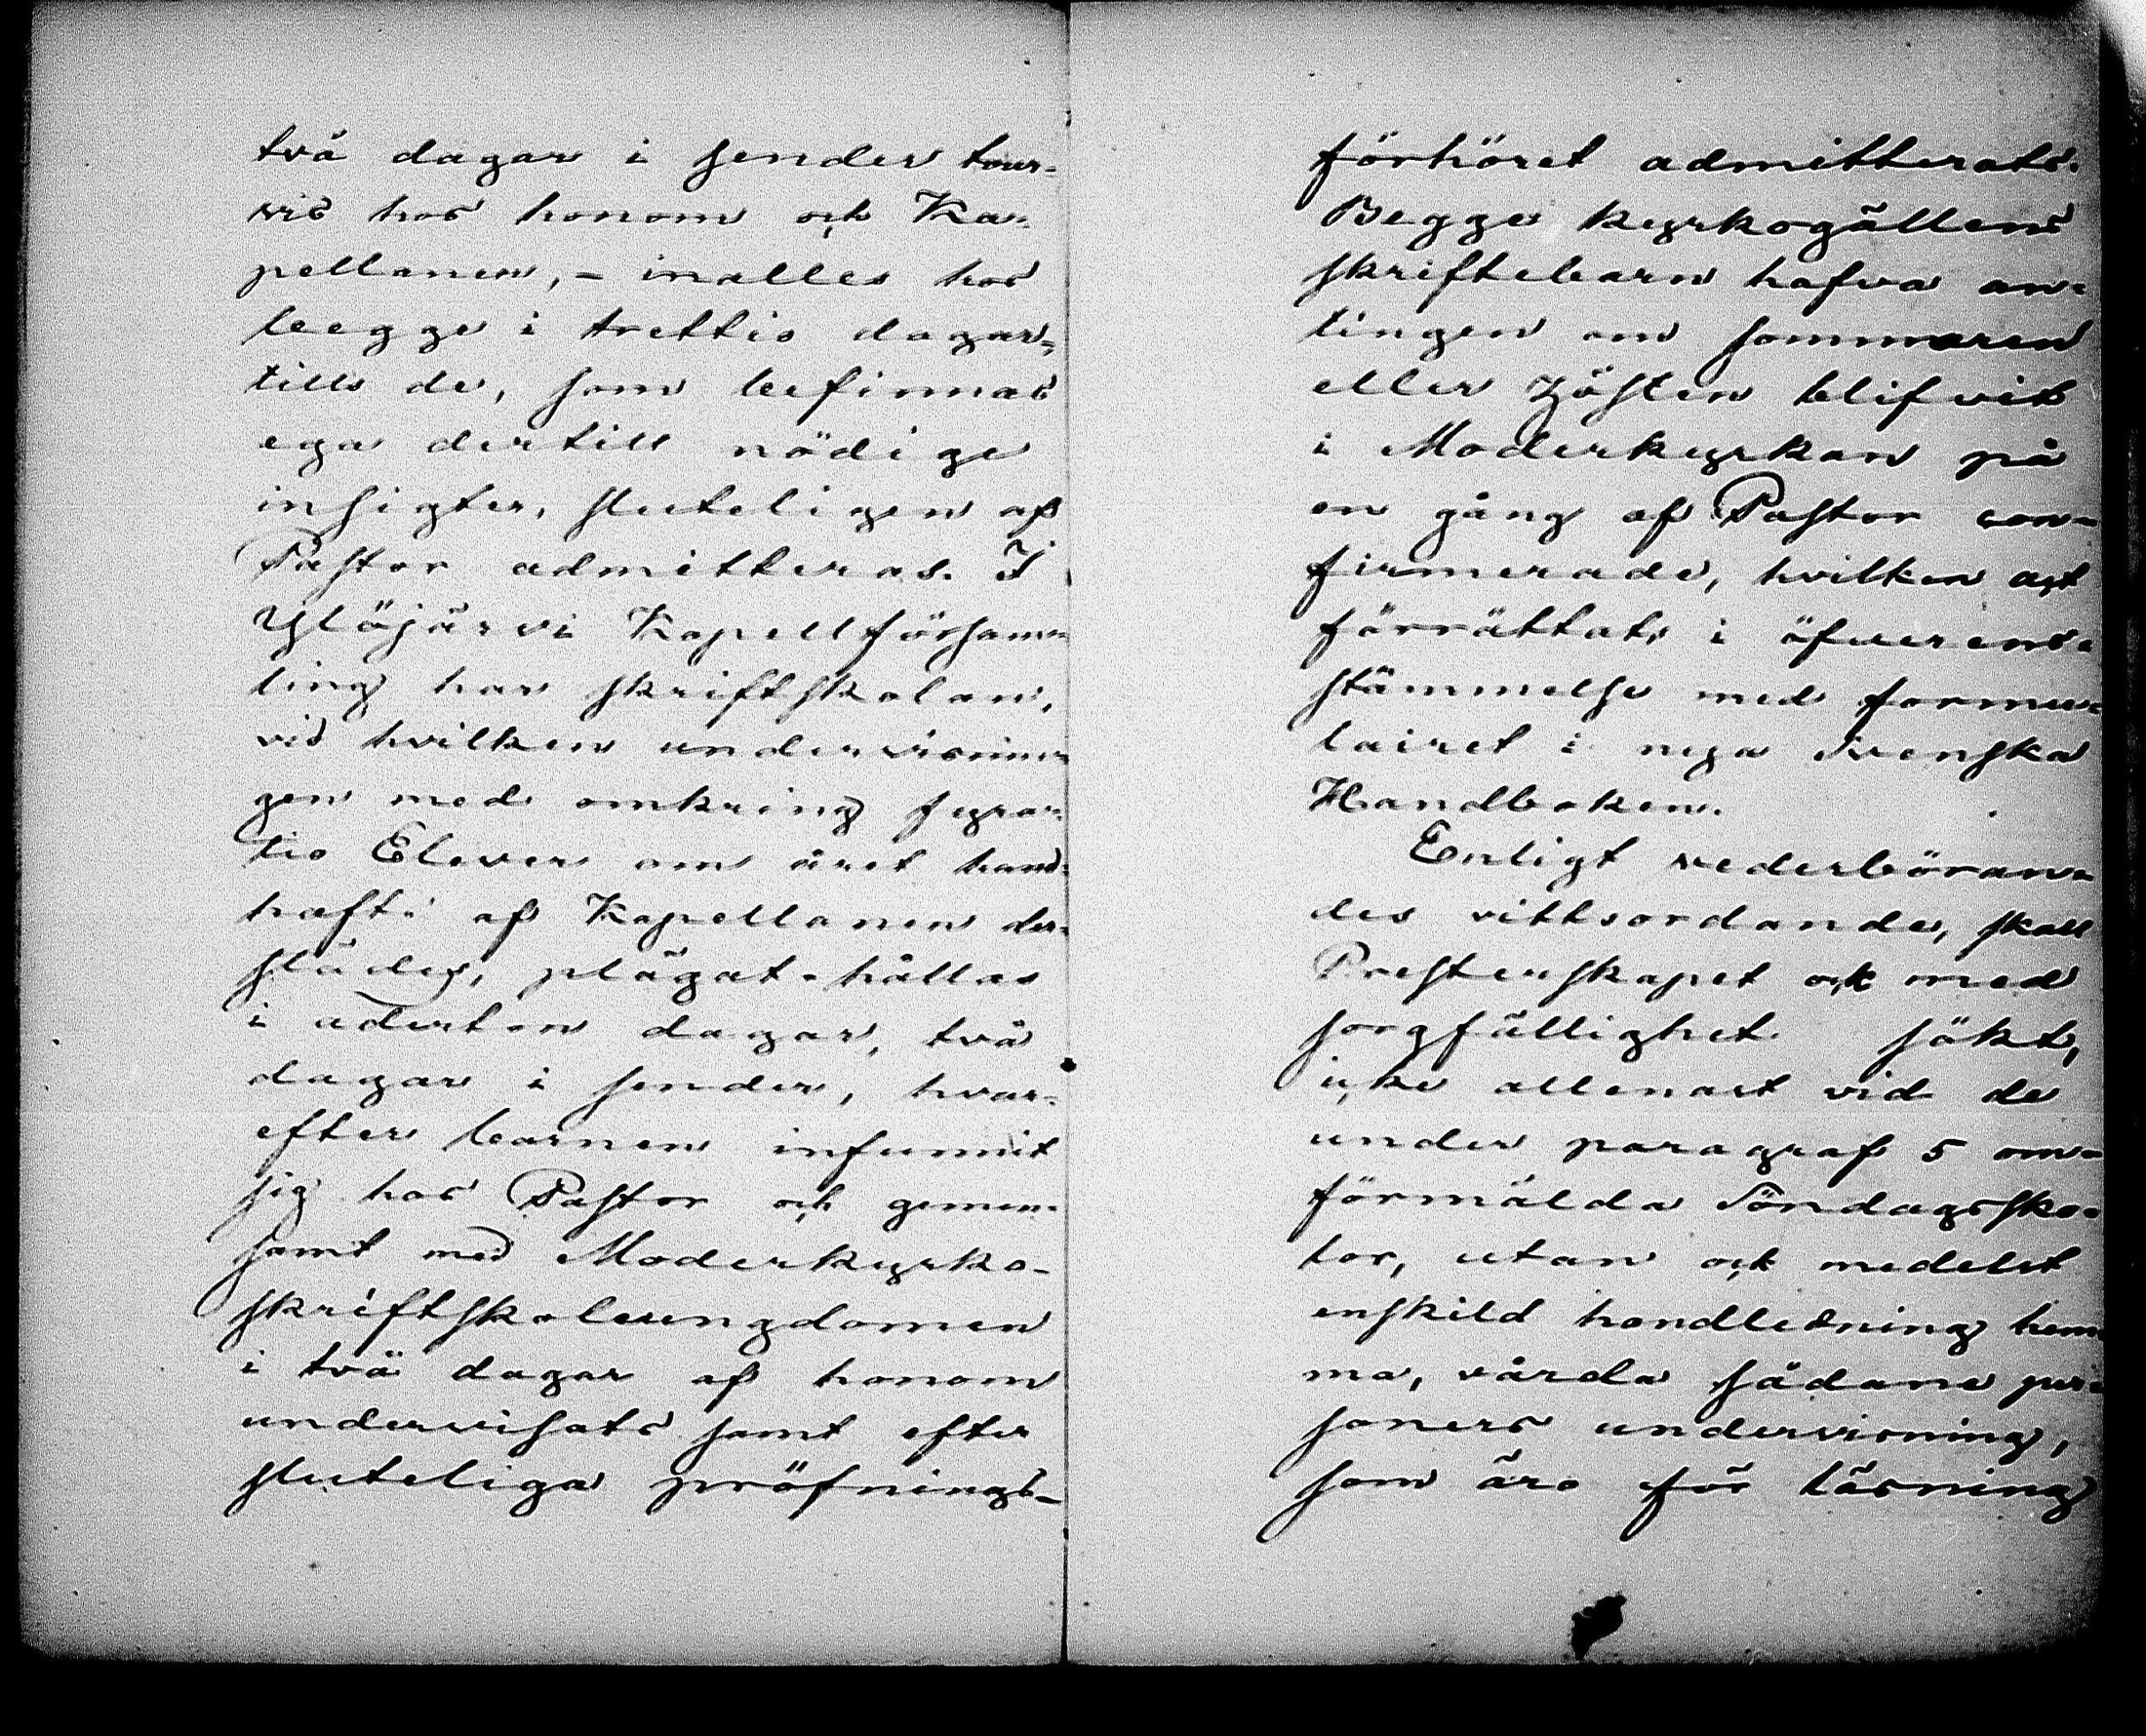 två dagar i sender tour-
vis hos honom och Ka-
pellanen, - inalles hos
begge i trettio dagar,
tills de, som befinnas
ega dertill nödige
insigter, sluteligen af
Pastor admitteras. I
Ylöjärvi Kapellförsam-
ling har skriftskolan,
vid hvilken undervisnin-
gen med omkring fyra-
tio Elever om året hand-
hafts af Kapellanen der-
städes, plägat hållas
i aderton dagar, två
dagar i sender, hvar-
efter barnen infunnit
sig hos Pastor och gemen-
samt med Moderkyrko-
skriftskoleungdomen
i två dagar af honom
undervisats samt efter
sluteliga pröfnings-
förhöret admitterats.
Begge kyrkogällens
skriftebarn hafva an-
tingen om sommaren
eller hösten blifvit
i Moderkyrkan på
en gång af Pastor con-
firmerade, hvilken agt
förrättats i öfverens-
stämmelse med formu-
lairet i nya Svenska
Handboken.
Enligt vederböran-
des vittsordande, skall
Presterskapet ock med
sorgfällighet sökt,
icke allenast vid de
under paragraf 5 om-
förmälda Söndagssko-
lor, utan ock medelst
enskild handledning hem-
ma, vårda sådane per-
soners undervisning,
som äro för läsning